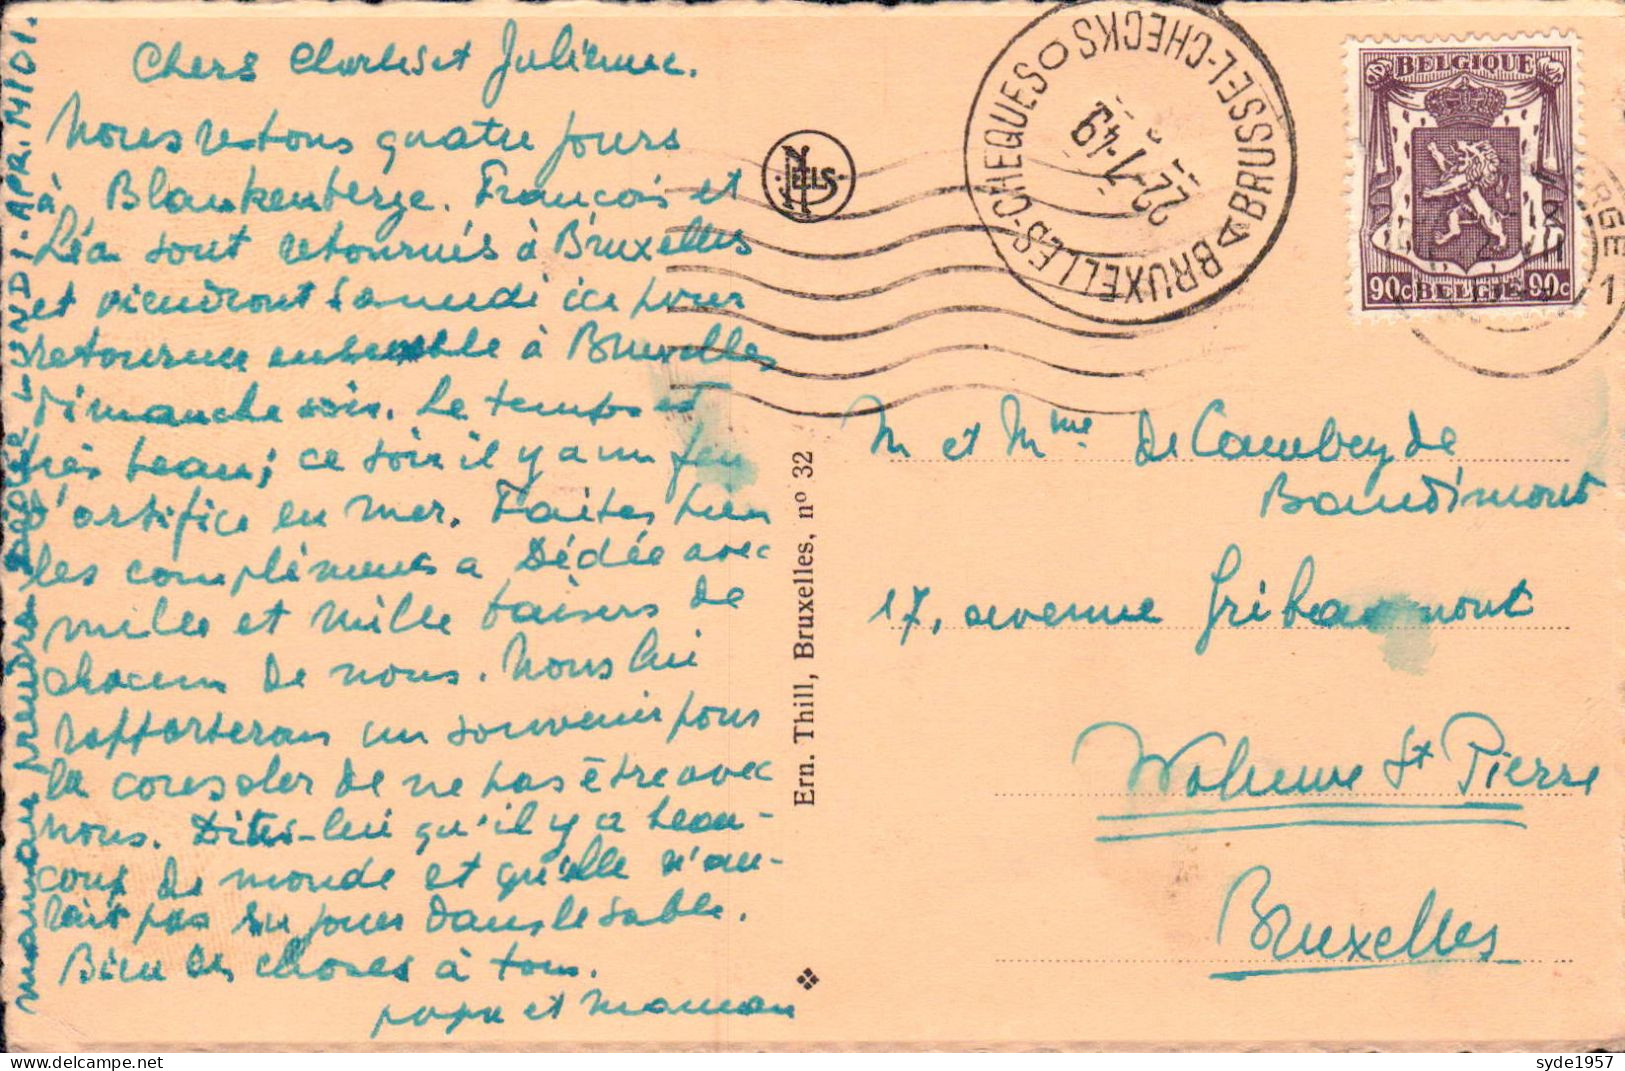 Chers Charles et Julienne.
Nous restons quatre jours
à Blankenberge. François et
Léa sont retournés à Bruxelles
et viendront samedi ici pour
retourner ensemble à Bruxelles
dimanche soir. Le temps est
très beau; ce soir il y a un feu
d'artifice en mer. Faites bien
les compliments a Dédée avec
mille et mille baisers de
chacun de nous. Nous lui
rapporterons un souvenir pour
la consoler de ne pas être avec
nous. Dites-lui qu'il y a beau-
coup de monde et qu'elle n'au-
rait pas su jouer dans le sable.
Bien des choses à tous.
papa et maman
maman prendra LUNDI. APR. MIDI.
NELS
Ern. Thill, Bruxelles, nº 32
BRUXELLES-CHEQUES
BRUSSEL-CHECKS
22-7-49
BELGIQUE
90c BELGIE 90c
M et Mme De Cambry de
Baudimont
17, avenue Gribaumont
Woluwe St Pierre
Bruxelles
syde1957